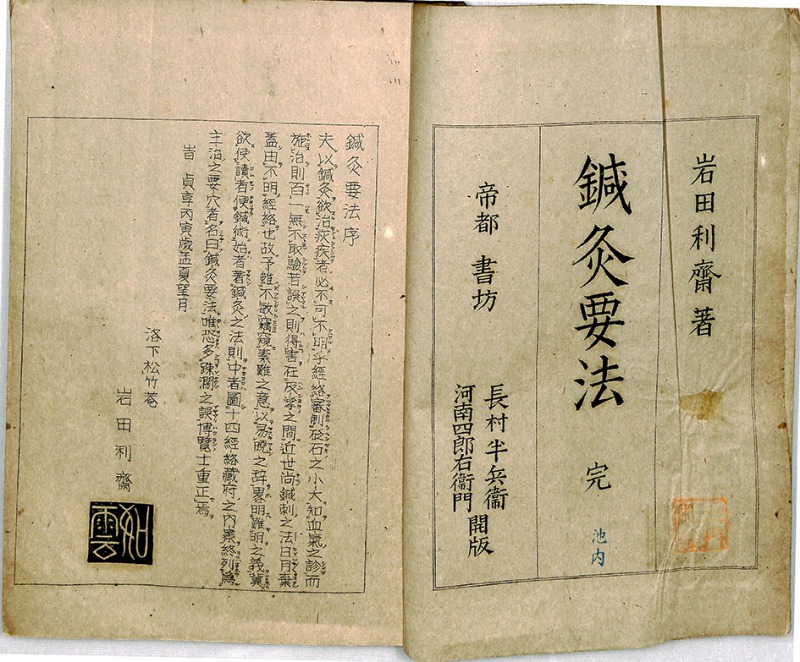 岩田利齋著
鍼灸要法 完
池内
帝都 書坊
長村半兵衞
河南四郎右衞門 開版
鍼灸要法序
夫以鍼灸欲治疢疾者必不可不明乎經絡審制砭石之小大知血氣之診而
施治則百一無不取驗若誤之則得害在反掌之間近世尚鍼刺之法日用棄
蓋由不明經絡也故予雖不敢竊窺素難之意以易曉之辞畧明難明之義冀
欲使讀者便鍼術始者著鍼灸之法則中者圖十四經絡藏府之內景終列爲
主治之要穴者名曰鍼灸要法唯恐多踈漏之誤博覽士重正焉
旹 貞享丙寅歳孟夏望月
洛下松竹菴
岩田利齋
如雲